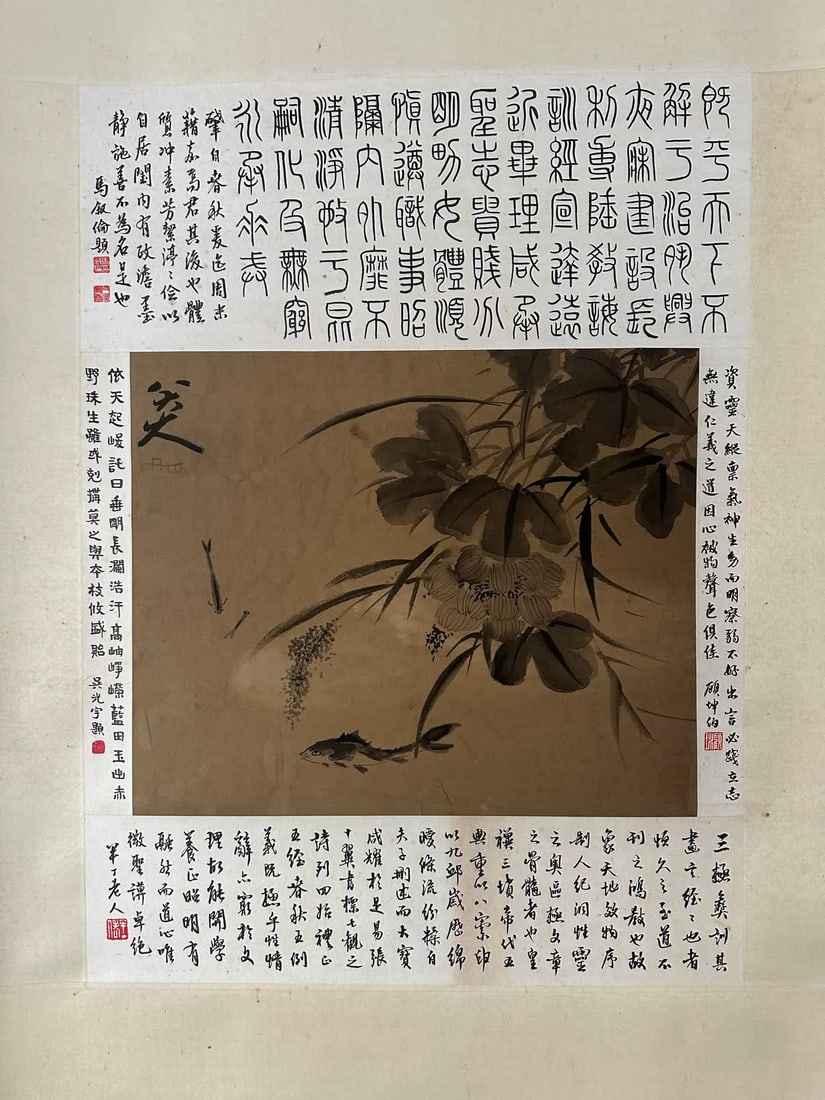 既平天下不
解于治夙興
夜寐建設長
利專隆教誨
訓經宣達遠
近畢理咸承
聖志貴賤分
明男女體順
慎遵職事昭
隔內外靡不
清淨施于昆
嗣化及無窮
永承重戒
肇自春秋爰迄周末
藉甚焉君其後也體
質沖素芳絜渟々儉以
自居閨內有政澹至
静施善不為名是也
馬叙倫題
資靈天縱稟氣神生幼而明察弱不好弄言必踐立志
無違仁義之道因心被物聲色俱佳 顧坤伯
八大
依天起峻託日垂明長瀾浩汗高岫崢嶸藍田玉出赤
野珠生雖或剋構莫之與本枝攸盛貽 吴光宇題
三極彝訓其
書言經々也者
恆久之至道不
刊之鴻教也故
象天地效物序
制人紀洞性靈
之奧區極文章
之骨髓者也皇
禩三墳帝代五
典重以八索申
以九邱歲歷綿
曖條流紛糅自
夫子刪述而大寶
咸耀於是易張
十翼書標七觀之
詩列四始禮正
五經春秋五例
義既極乎性情
辭亦窮於文
理故能開學
養正昭明有
融然而道心唯
微聖謨卓絕
半丁老人